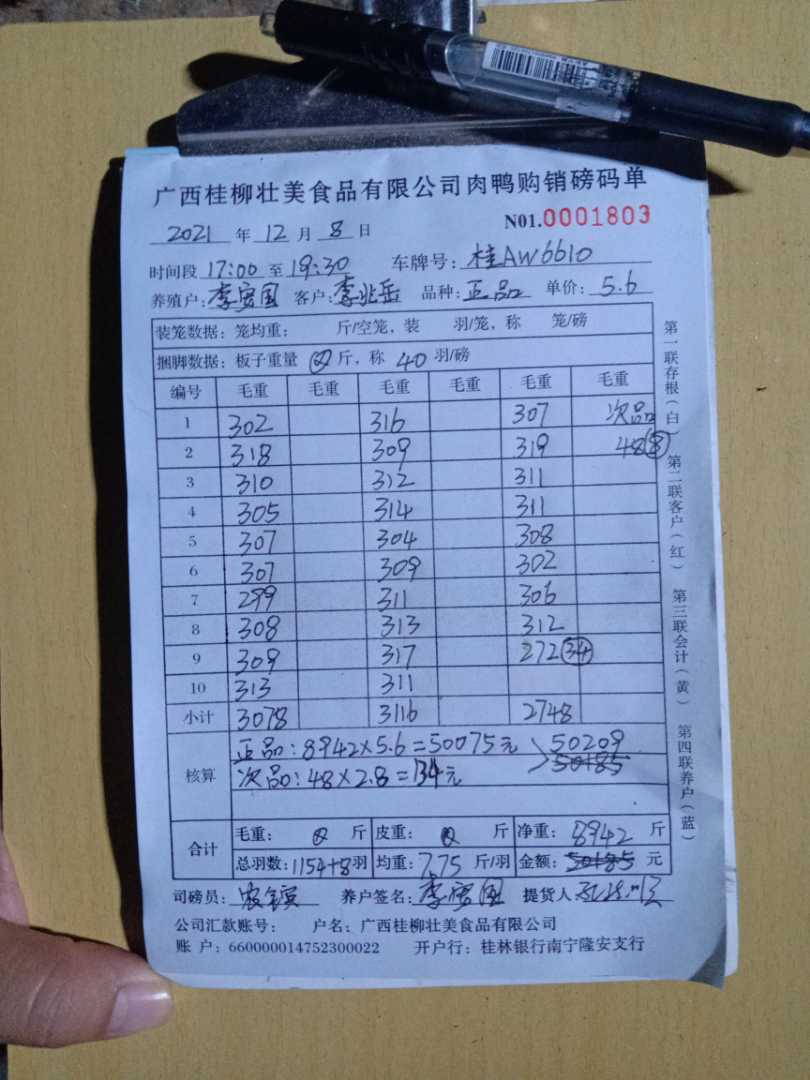 广西桂柳壮美食品有限公司肉鸭购销磅码单
2021 年 12 月 8 日 N01.0001803
时间段 17:00 至 19:30 车牌号: 桂AW6610
养殖户: 李 国 客户: 李兆岳 品种: 正品 单价: 5.6
装笼数据: 笼均重: 斤/空笼, 装 羽/笼, 称 笼/磅
捆脚数据: 板子重量 斤, 称 40 羽/磅
编号 毛重 毛重 毛重 毛重 毛重 毛重
1 302 316 307 次品
2 318 309 319 48 8
3 310 312 311
4 305 314 311
5 307 304 308
6 307 309 302
7 299 311 306
8 308 313 312
9 309 317 272 34
10 313 311
小计 3078 3116 2748
核算 正品: 8942×5.6=50075元 50209
次品: 48×2.8=134元 50185
合计 毛重: 斤 皮重: 斤 净重: 8942 斤
总羽数: 1154+8羽 均重: 7.75 斤/羽 金额: 50185 元
司磅员: 养户签名: 李 国 提货人
公司汇款账号: 户名: 广西桂柳壮美食品有限公司
账 户: 660000014752300022 开户行: 桂林银行南宁隆安支行
第一联存根(白) 第二联客户(红) 第三联会计(黄) 第四联养户(蓝)